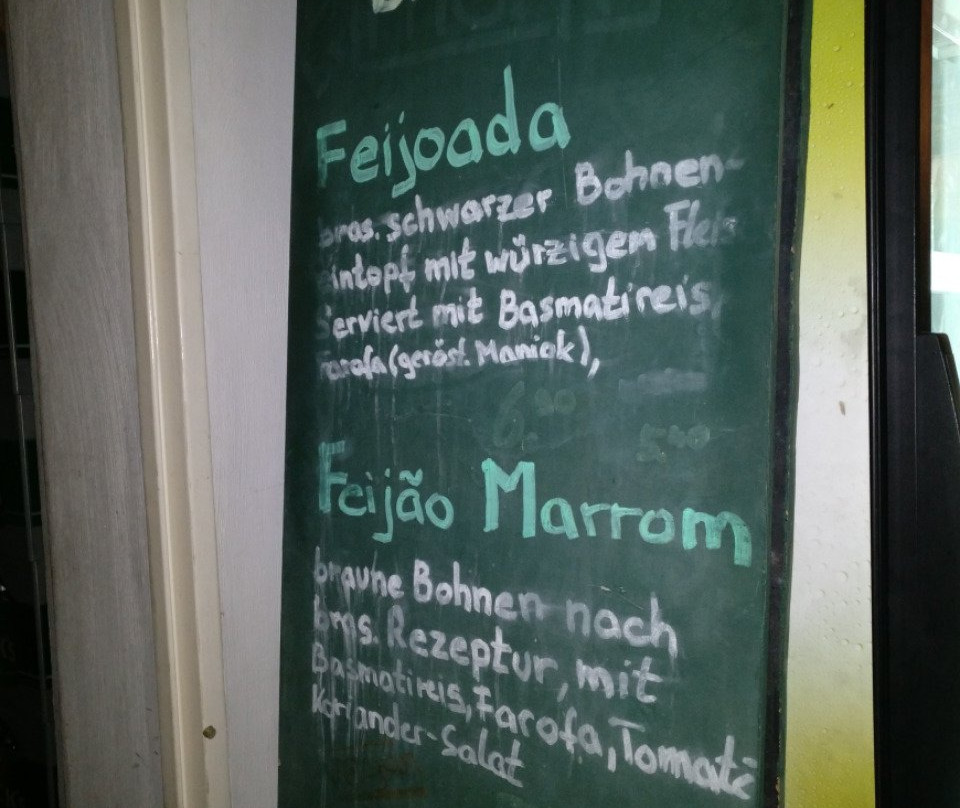 Feijoada
bras. schwarzer Bohnen-
eintopf mit würzigem Fleis
Serviert mit Basmatireis,
Farofa (geröst. Maniok),
6.90
5.40
Feijão Marrom
braune Bohnen nach
bras. Rezeptur, mit
Basmatireis, Farofa, Tomate
Koriander-Salat